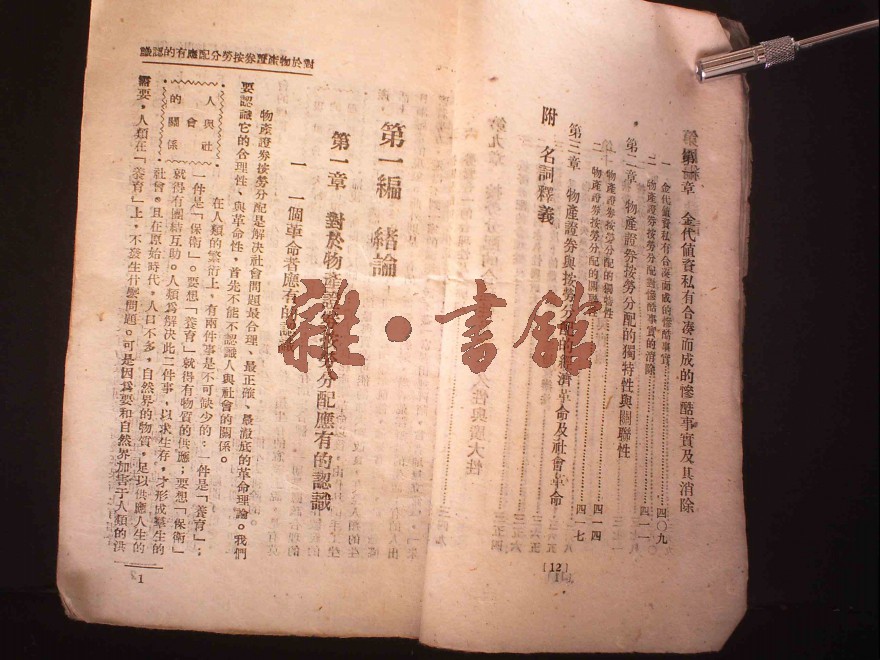 第一章 金代值資私有合湊而成的慘酷事實及其消除
一 金代值資私有合湊而成的慘酷事實 四〇九
二 物產證券按勞分配對慘酷事實的消除 四一一
第二章 物產證券按勞分配的獨特性與關聯性
一 物產證券按勞分配的獨特性
二 物產證券按勞分配的關聯 四一四
第三章 物產證券與按勞分配的經濟革命及社會革命 四一七
附 名詞釋義
[12]
對於物產證券按勞分配應有的認識
第一編 緒論
第一章 對於物產證券按勞分配應有的認識
一 一個革命者應有的認識
物產證券按勞分配是解決社會問題最合理、最正確、最澈底的革命理論。我們
要認識它的合理性、與革命性,首先不能不認識人與社會的關係。
人與社
會
的關係
在人類的繁衍上,有兩件事是不可缺少的:一件是「養育」;
一件是「保衛」。要想「養育」就得有物質的供應;要想「保衛」
就得有團結互助。人類為解決此二件事,以求生存,才形成羣生的
社會。且在原始時代,人口不多,自然界的物質,足以供應人生的
需要,人類在「養育」上,不發生什麼問題。可是因為要和自然界加害于人類的洪
1